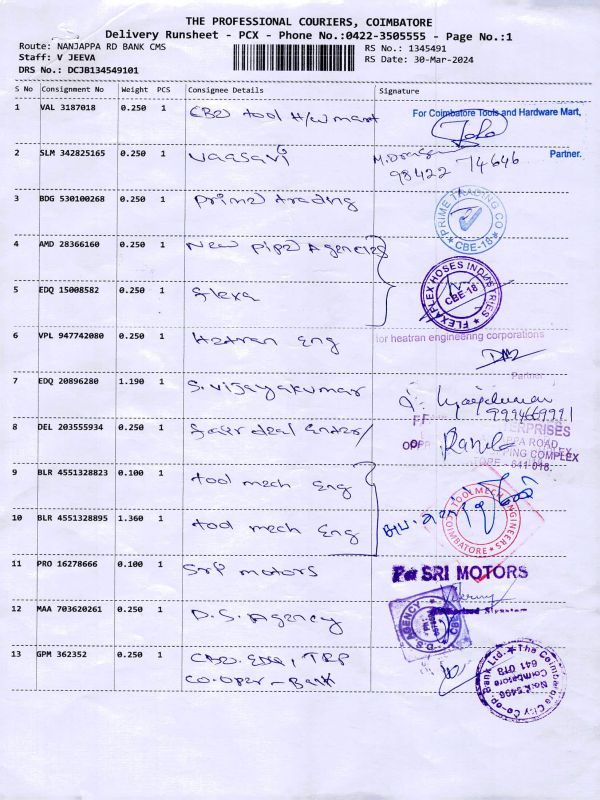 THE PROFESSIONAL COURIERS, COIMBATORE
Delivery Runsheet - PCX - Phone No.:0422-3505555 - Page No.:1
Route: NANJAPPA RD BANK CMS RS No.: 1345491
Staff: V JEEVA RS Date: 30-Mar-2024
DRS No.: DCJB134549101
S No Consignment No Weight PCS Consignee Details Signature
1 VAL 3187018 0.250 1 CBE tool H/w mart For Coimbatore Tools and Hardware Mart,
Partner.
2 SLM 342825165 0.250 1 Vaasavi 98422 74646
3 BDG 530100268 0.250 1 Prime trading PRIME TRADING CO CBE-18
4 AMD 28366160 0.250 1 New pipe Agencies
5 EDQ 15008582 0.250 1 flexa FLEXAFLEX HOSES INDUSTRIES CBE-18
6 VPL 947742080 0.250 1 Hetran Eng for heatran engineering corporations
Partner
7 EDQ 20896280 1.190 1 S. Vijayakumar
8 DEL 203555934 0.250 1
PPING COMPLEX
641 018.
9 BLR 4551328823 0.100 1 tool mech Eng
10 BLR 4551328895 1.360 1 tool mech Eng TOOL MECH ENGINEERS COIMBATORE
11 PRO 16278666 0.100 1 Sri motors For SRI MOTORS
12 MAA 703620261 0.250 1 D.S. Agency D.S AGENCY
13 GPM 362352 0.250 1
Co-oper-Bank The Coimbatore City Co-op. Bank Ltd. No.K.5496 Coimbatore 641 018